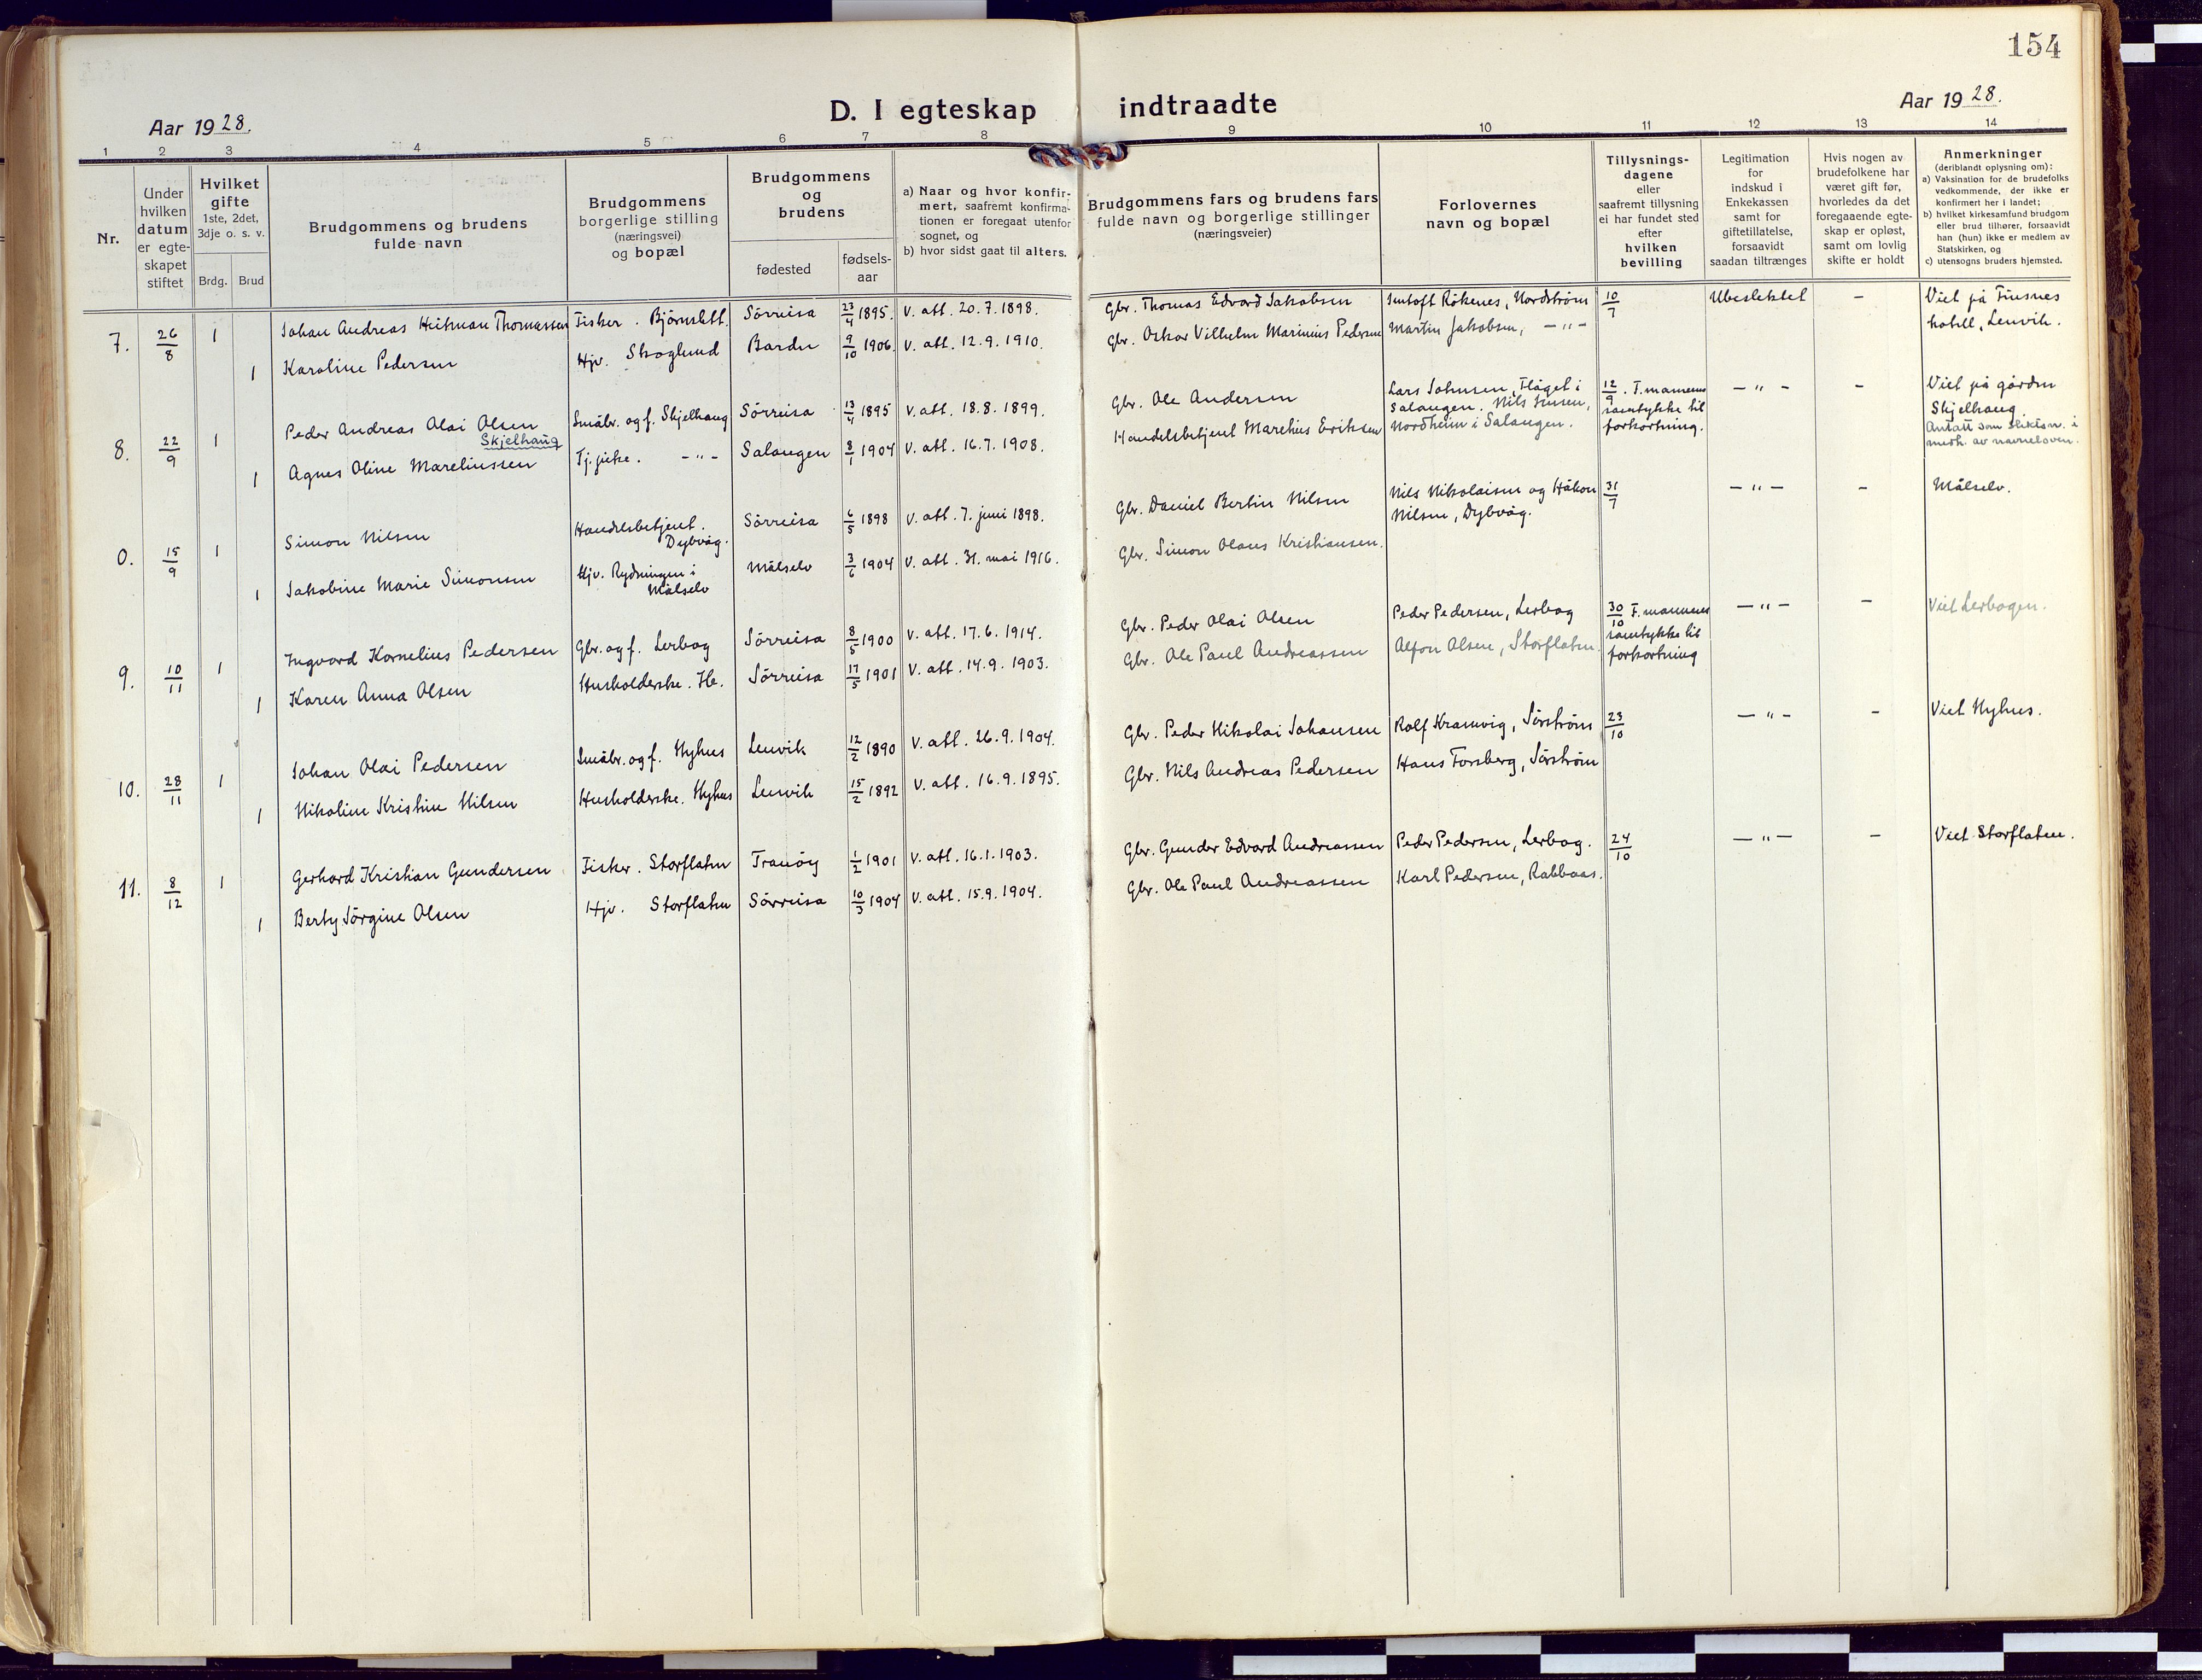 154
D. I egteskap indtraadte
Aar 1928.
Aar 1928.
1 2 3 4 5 6 7 8 9 10 11 12 13 14
Nr.
Under hvilken datum er egteskapet stiftet
Hvilket gifte 1ste, 2det, 3dje o. s. v.
Brdg. Brud
Brudgommens og brudens fulde navn
Brudgommens borgerlige stilling (næringsvei) og bopæl
Brudgommens og brudens
fødested
fødselsaar
a) Naar og hvor konfirmert, saafremt konfirmationen er foregaat utenfor sognet, og
b) hvor sidst gaat til alters.
Brudgommens fars og brudens fars fulde navn og borgerlige stillinger (næringsveier)
Forlovernes navn og bopæl
Tillysningsdagene eller saafremt tillysning ei har fundet sted efter hvilken bevilling
Legitimation for indskud i Enkekassen samt for giftetillatelse, forsaavidt saadan tiltrænges
Hvis nogen av brudefolkene har været gift før, hvorledes da det foregaaende egteskap er opløst, samt om lovlig skifte er holdt
Anmerkninger (deriblandt oplysning om):
a) Vaksination for de brudefolks vedkommende, der ikke er konfirmert her i landet;
b) hvilket kirkesamfund brudgom eller brud tilhører, forsaavidt han (hun) ikke er medlem av Statskirken, og
c) utensogns bruders hjemsted.
7. 26/8 1 Johan Andreas Heitman Thomassen Fisker. Bjørnslett. Sörreisa 23/4 1895. V. att. 20.7.1898. Gbr. Thomas Edvard Jakobsen Rökenes, Nordström 10/7 Ubeslektet – Viet på Finsnes
1 Karoline Pedersen Hjv. Skoglund Bardu 9/10 1906. V. att. 12.9.1910. Gbr. Oskar Vilhelm Marinius Pedersen Martin Jakobsen, – „ – hotell, Lenvik.
8. 22/9 1 Peder Andreas Olai Olsen Småbr. og f. Skjelhaug Sörreisa 13/4 1895 V. att. 18.8.1899. Gbr. Ole Andersen Lars Johnsen, Flåget i Salangen. Nils Jensen, Nordheim i Salangen. 12/9. F. mannens samtykke til forkortning. – „ – – Viet på gården Skjelhaug.
Skjelhaug
Antatt som slektsn. i medh. av navneloven.
1 Agnes Oline Mareliussen Tj.pike. – „ – Salangen 8/1 1904 V. att. 16.7.1908. Handelsbetjent Marelius Eriksen
0. 15/9 1 Simon Nilsen Handelsbetjent. Dybvåg. Sörreisa 6/5 1898 V. att. 7. juni 1898. Gbr. Daniel Bertin Nilsen Nils Nikolaisen og Håkon Nilsen, Dybvåg. 31/7 – „ – – Målselv.
1 Jakobine Marie Simonsen Hjv. Rydningen i Målselv Målselv 3/6 1904 V. att. 31. mai 1916. Gbr. Simon Olaus Kristiansen.
9. 10/11 1 Ingvard Kornelius Pedersen Gbr. og f. Lerbog Sörreisa 8/5 1900 V. att. 17.6.1914. Gbr. Peder Olai Olsen Peder Pedersen, Lerbog 30/10 F. mannens samtykke til forkortning – „ – – Viet Lerbogen.
1 Karen Anna Olsen Husholderske. He. Sörreisa 17/5 1901 V. att. 14.9.1903. Gbr. Ole Paul Andreassen Alfon Olsen, Storflaten.
10. 28/11 1 Johan Olai Pedersen Småbr. og f. Nyhus Lenvik 12/2 1890 V. att. 26.9.1904. Gbr. Peder Nikolai Johansen Rolf Kramvig, Sörström 23/10 – „ – – Viet Nyhus.
1 Nikoline Kristine Nilsen Husholderske. Nyhus Lenvik 15/2 1892 V. att. 16.9.1895. Gbr. Nils Andreas Pedersen Hans Forsberg, Sörström
11. 8/12 1 Gerhard Kristian Gundersen Fisker. Storflaten Tranöy 1/2 1901 V. att. 16.1.1903. Gbr. Gunder Edvard Andreassen Peder Pedersen, Lerbog. 24/10 – „ – – Viet Storflaten.
1 Berty Jörgine Olsen Hjv. Storflaten Sörreisa 10/3 1904 V. att. 15.9.1904. Gbr. Ole Paul Andreassen Karl Pedersen, Rabbaas.